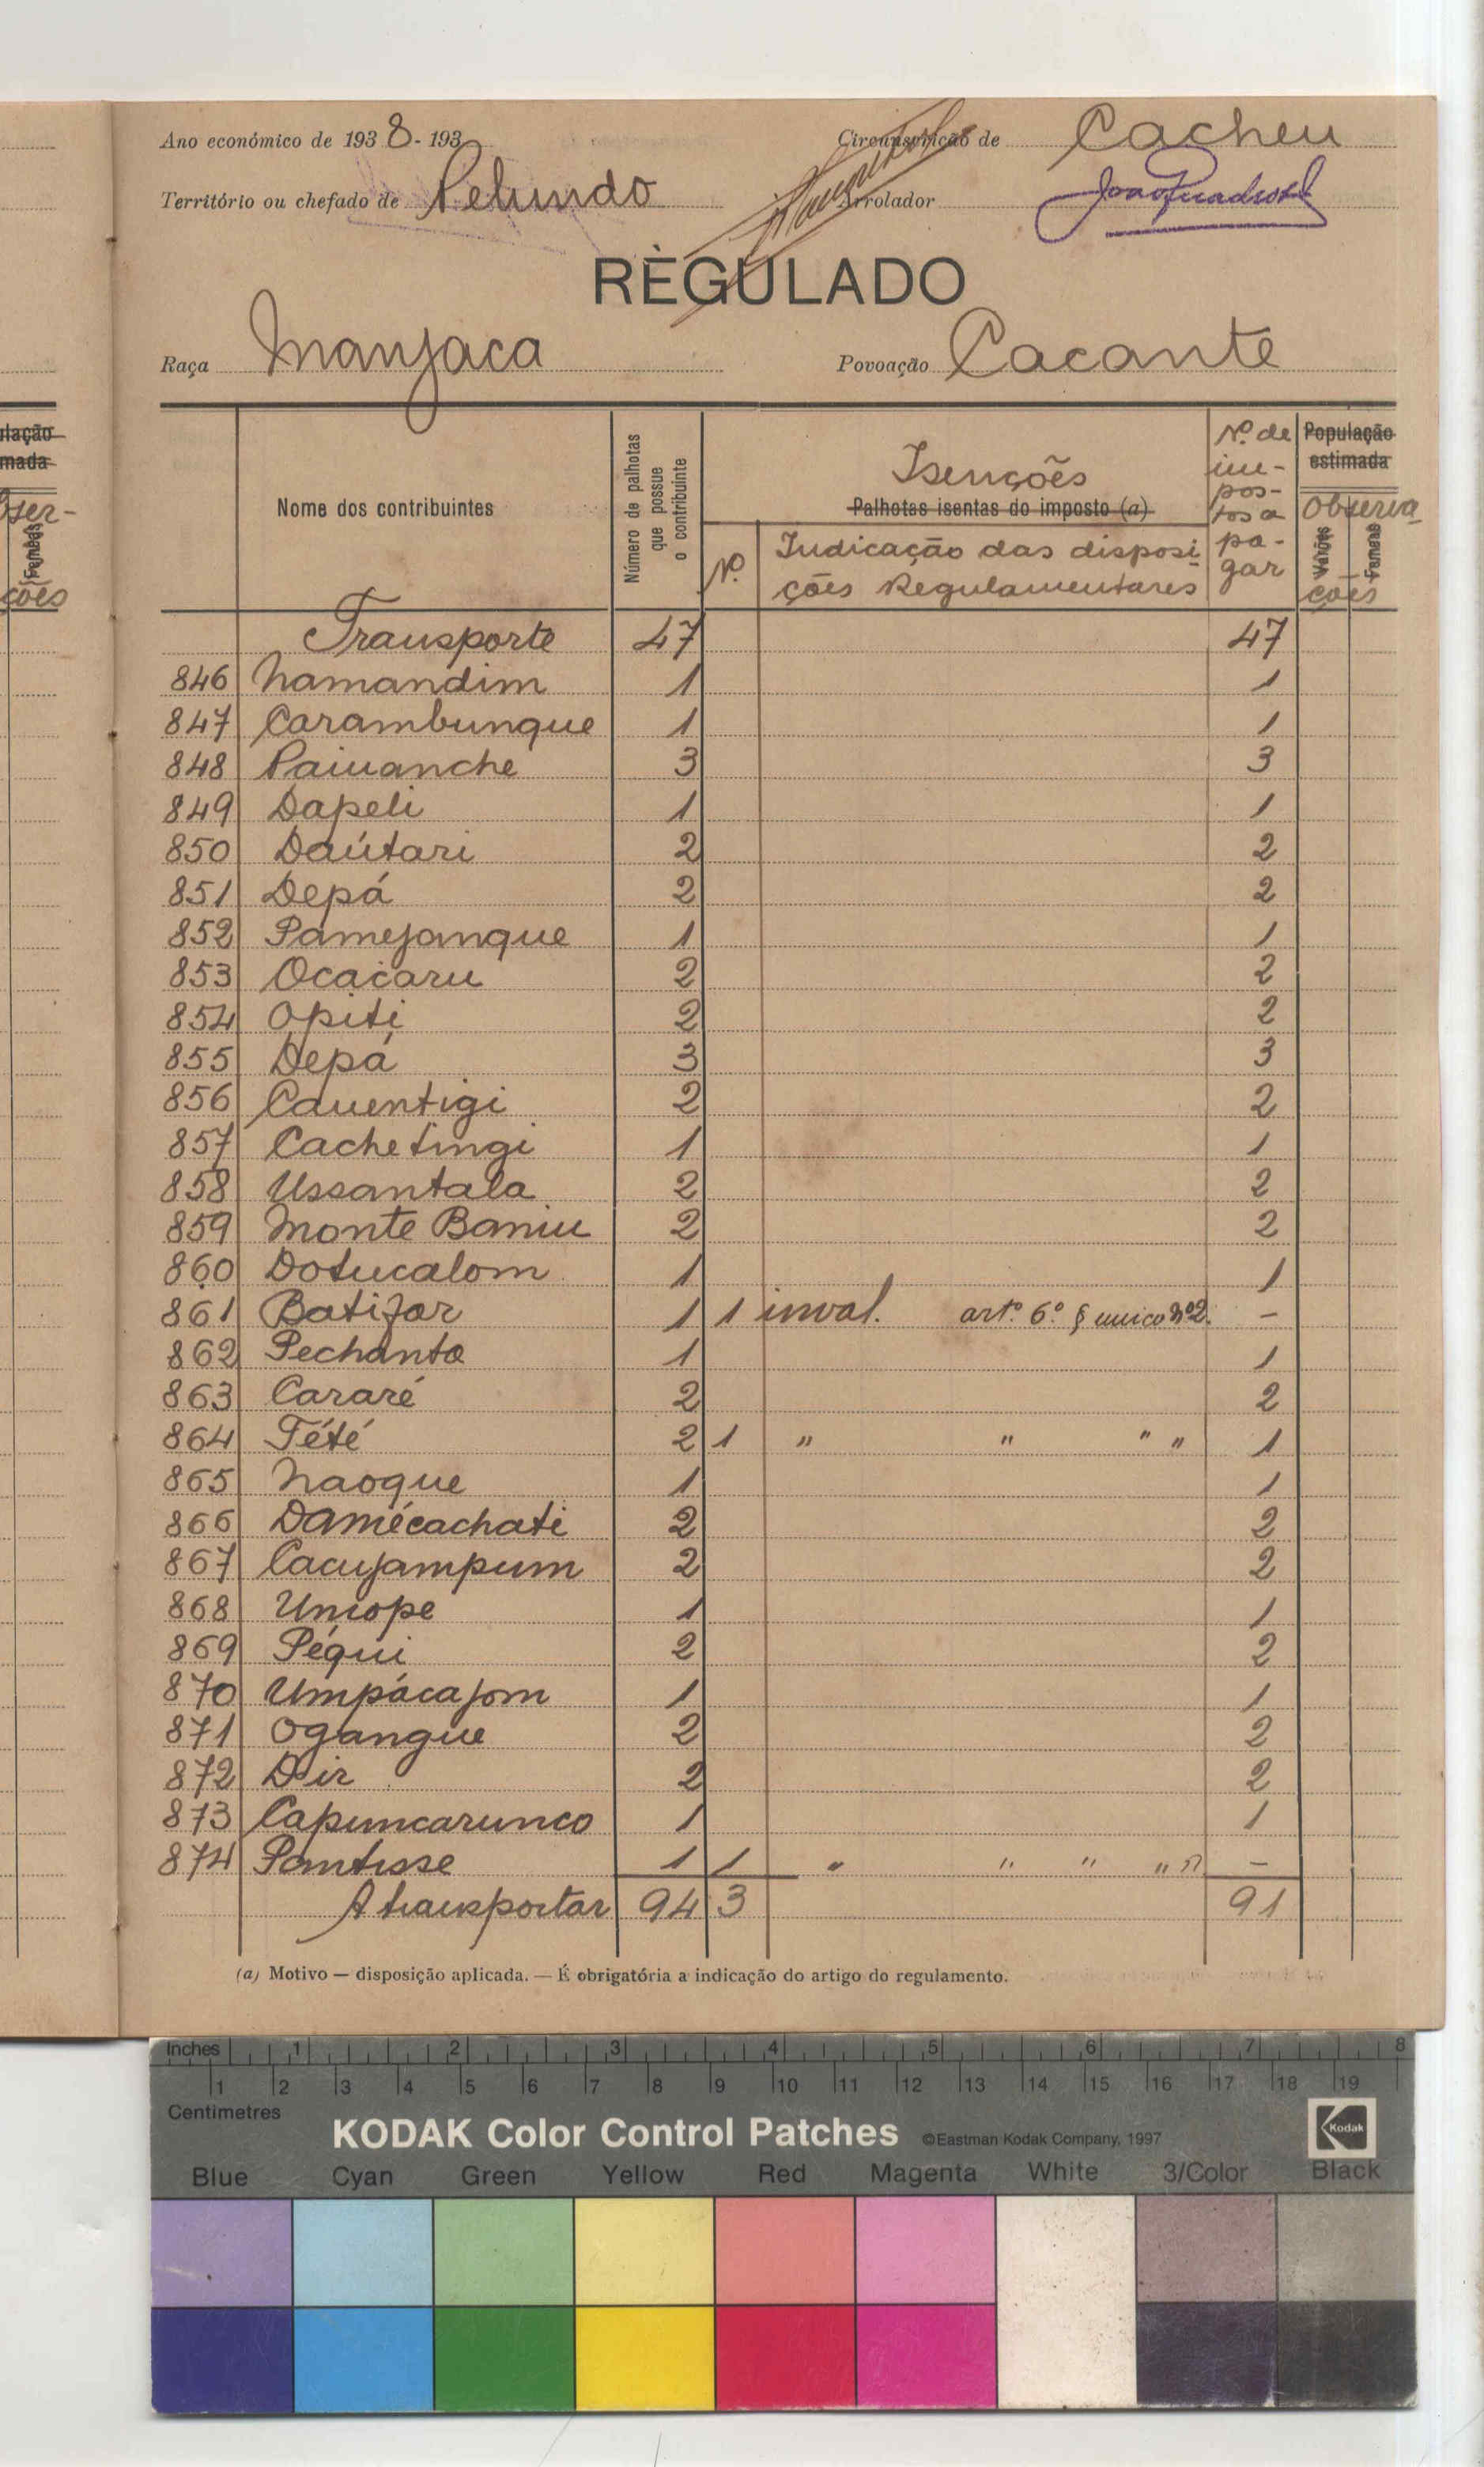 Ano económico de 1938-193
Circunscrição de Cacheu
Território ou chefado de Pelundo
Arrolador
RÈGULADO
Raça Manjaca
Povoação Cacante
Nome dos contribuintes
Número de palhotas que possue o contribuinte
Isenções
Palhotas isentas do imposto (a)
Nº
Indicação das disposições Regulamentares
Nº de impostos a pagar
População estimada
Observações
Varões
Femeas
Transporte 47 47
846 Namandim 1 1
847 Carambunque 1 1
848 Paiuanche 3 3
849 Dapeli 1 1
850 Daútari 2 2
851 Depá 2 2
852 Pamejanque 1 1
853 Ocacaru 2 2
854 Opiti 2 2
855 Depá 3 3
856 Cauentigi 2 2
857 Cachetingi 1 1
858 Ussantala 2 2
859 Monte Baniu 2 2
860 Dotucalom 1 1
861 Batifar 1 1 inval. artº 6º § unico nº2. -
862 Pechanta 1 1
863 Cararé 2 2
864 Tété 2 1 " " " " 1
865 Naoque 1 1
866 Damécachati 2 2
867 Cacujampum 2 2
868 Uniope 1 1
869 Péqui 2 2
870 Umpácajom 1 1
871 Ogangue 2 2
872 Dir 2 2
873 Capuncarunco 1 1
874 Pantisse 1 1 " " " " " -
A transportar 94 3 91
(a) Motivo — disposição aplicada. — É obrigatória a indicação do artigo do regulamento.
Inches 1 2 3 4 5 6 7 8
1 2 3 4 5 6 7 8 9 10 11 12 13 14 15 16 17 18 19
Centimetres
KODAK Color Control Patches ©Eastman Kodak Company, 1997 Kodak
Blue Cyan Green Yellow Red Magenta White 3/Color Black